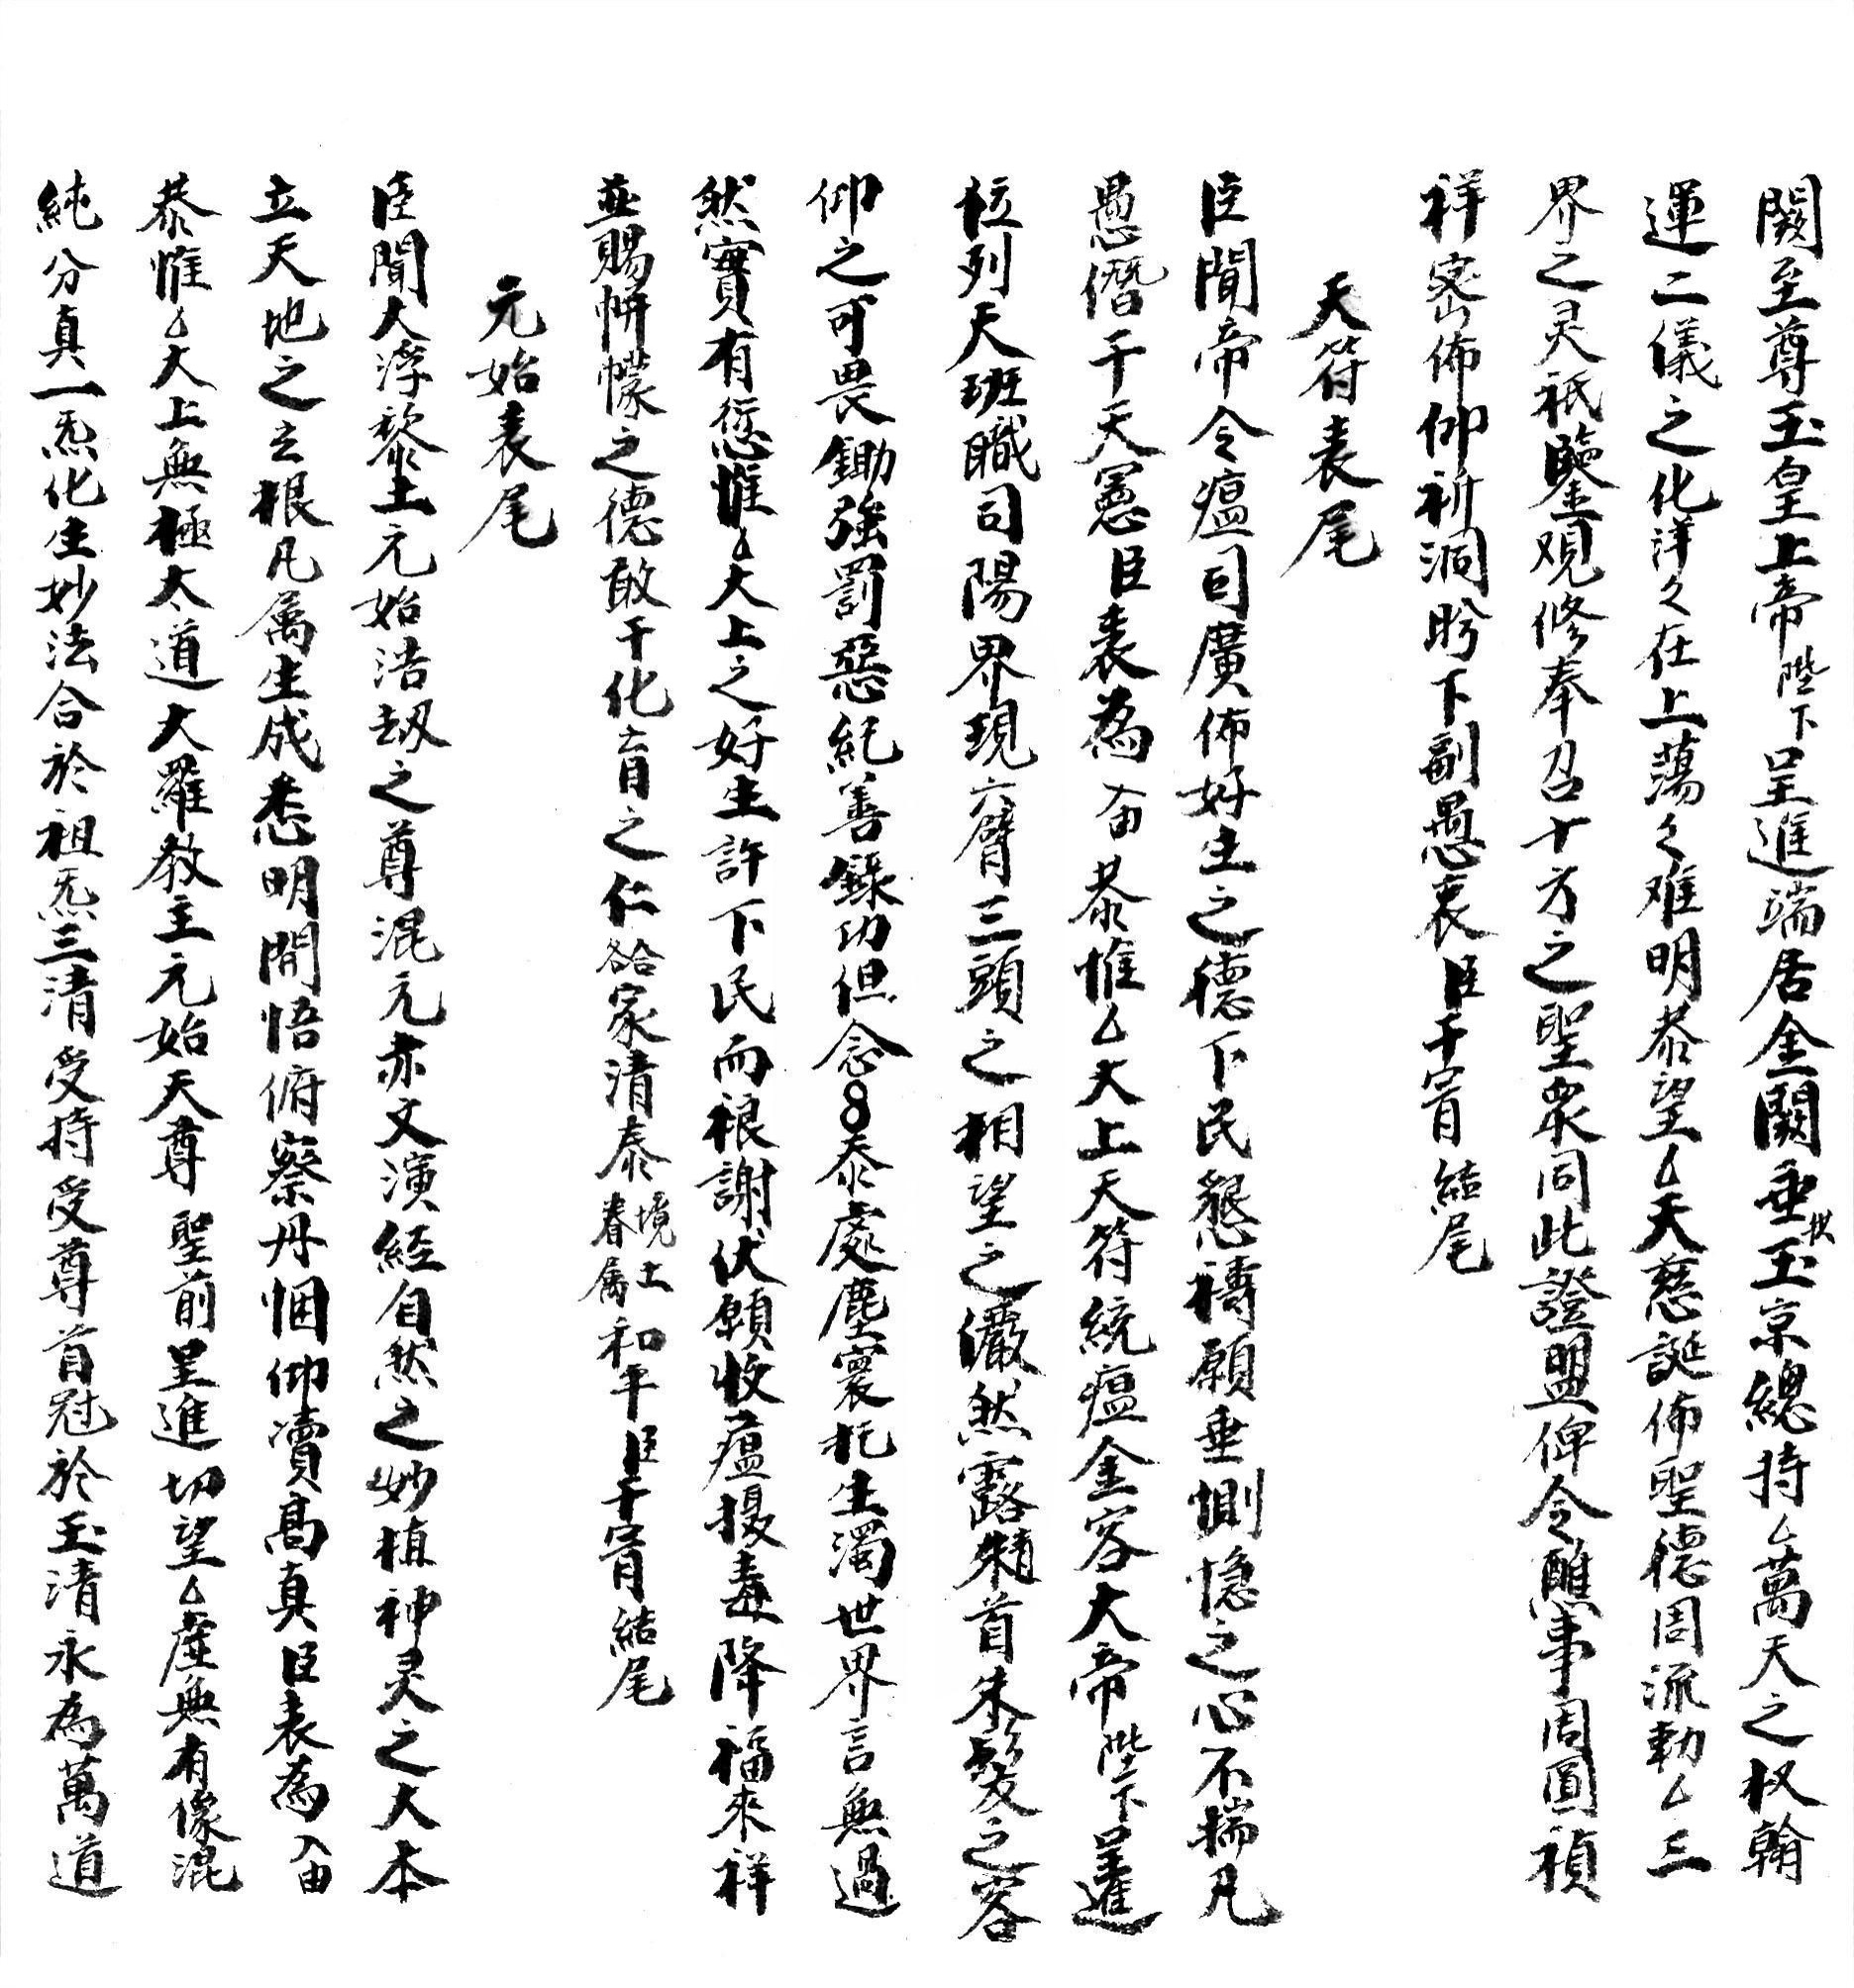 闕至尊玉皇上帝陛下呈進端居金闕垂拱玉京總持厶萬天之权斡
運二儀之化洋々在上蕩々难明恭望厶天慈誕佈聖德周流勅厶三
界之灵祇鑒观修奉召十方之聖眾同此證盟俾令醮事周圓禎
祥密佈仰祈洞盻下副愚衷臣干冐結尾
天符表尾
臣聞帝令瘟司廣佈好生之德下民懇禱願垂惻隐之心不揣凡
愚僭干天憲臣表為 入由 恭惟厶大上天符統瘟金容大帝陛下呈進
位列天班職司陽界現六臂三頭之相望之儼然露頳首朱髮之容
仰之可畏鋤強罰惡紀善錄功但念8忝處塵寰托生濁世界言無過
然實有愆惟厶大上之好生許下民而祿謝伏願收瘟摄毒降福來祥
並賜帡幪之德敢干化育之仁 家清泰境土眷属和平臣干冐結尾
元始表尾
臣聞大浮黎土元始浩劫之尊混元赤文演經自然之妙植神灵之大本
立天地之玄根凡属生成悉明開悟俯察丹悃仰凟髙真臣表為 入由
恭惟厶大上無極大道大羅教主元始天尊 聖前呈進切望厶虛無有像混
純分真一炁化生妙法合於祖炁三清受持受尊首冠於玉清永為萬道